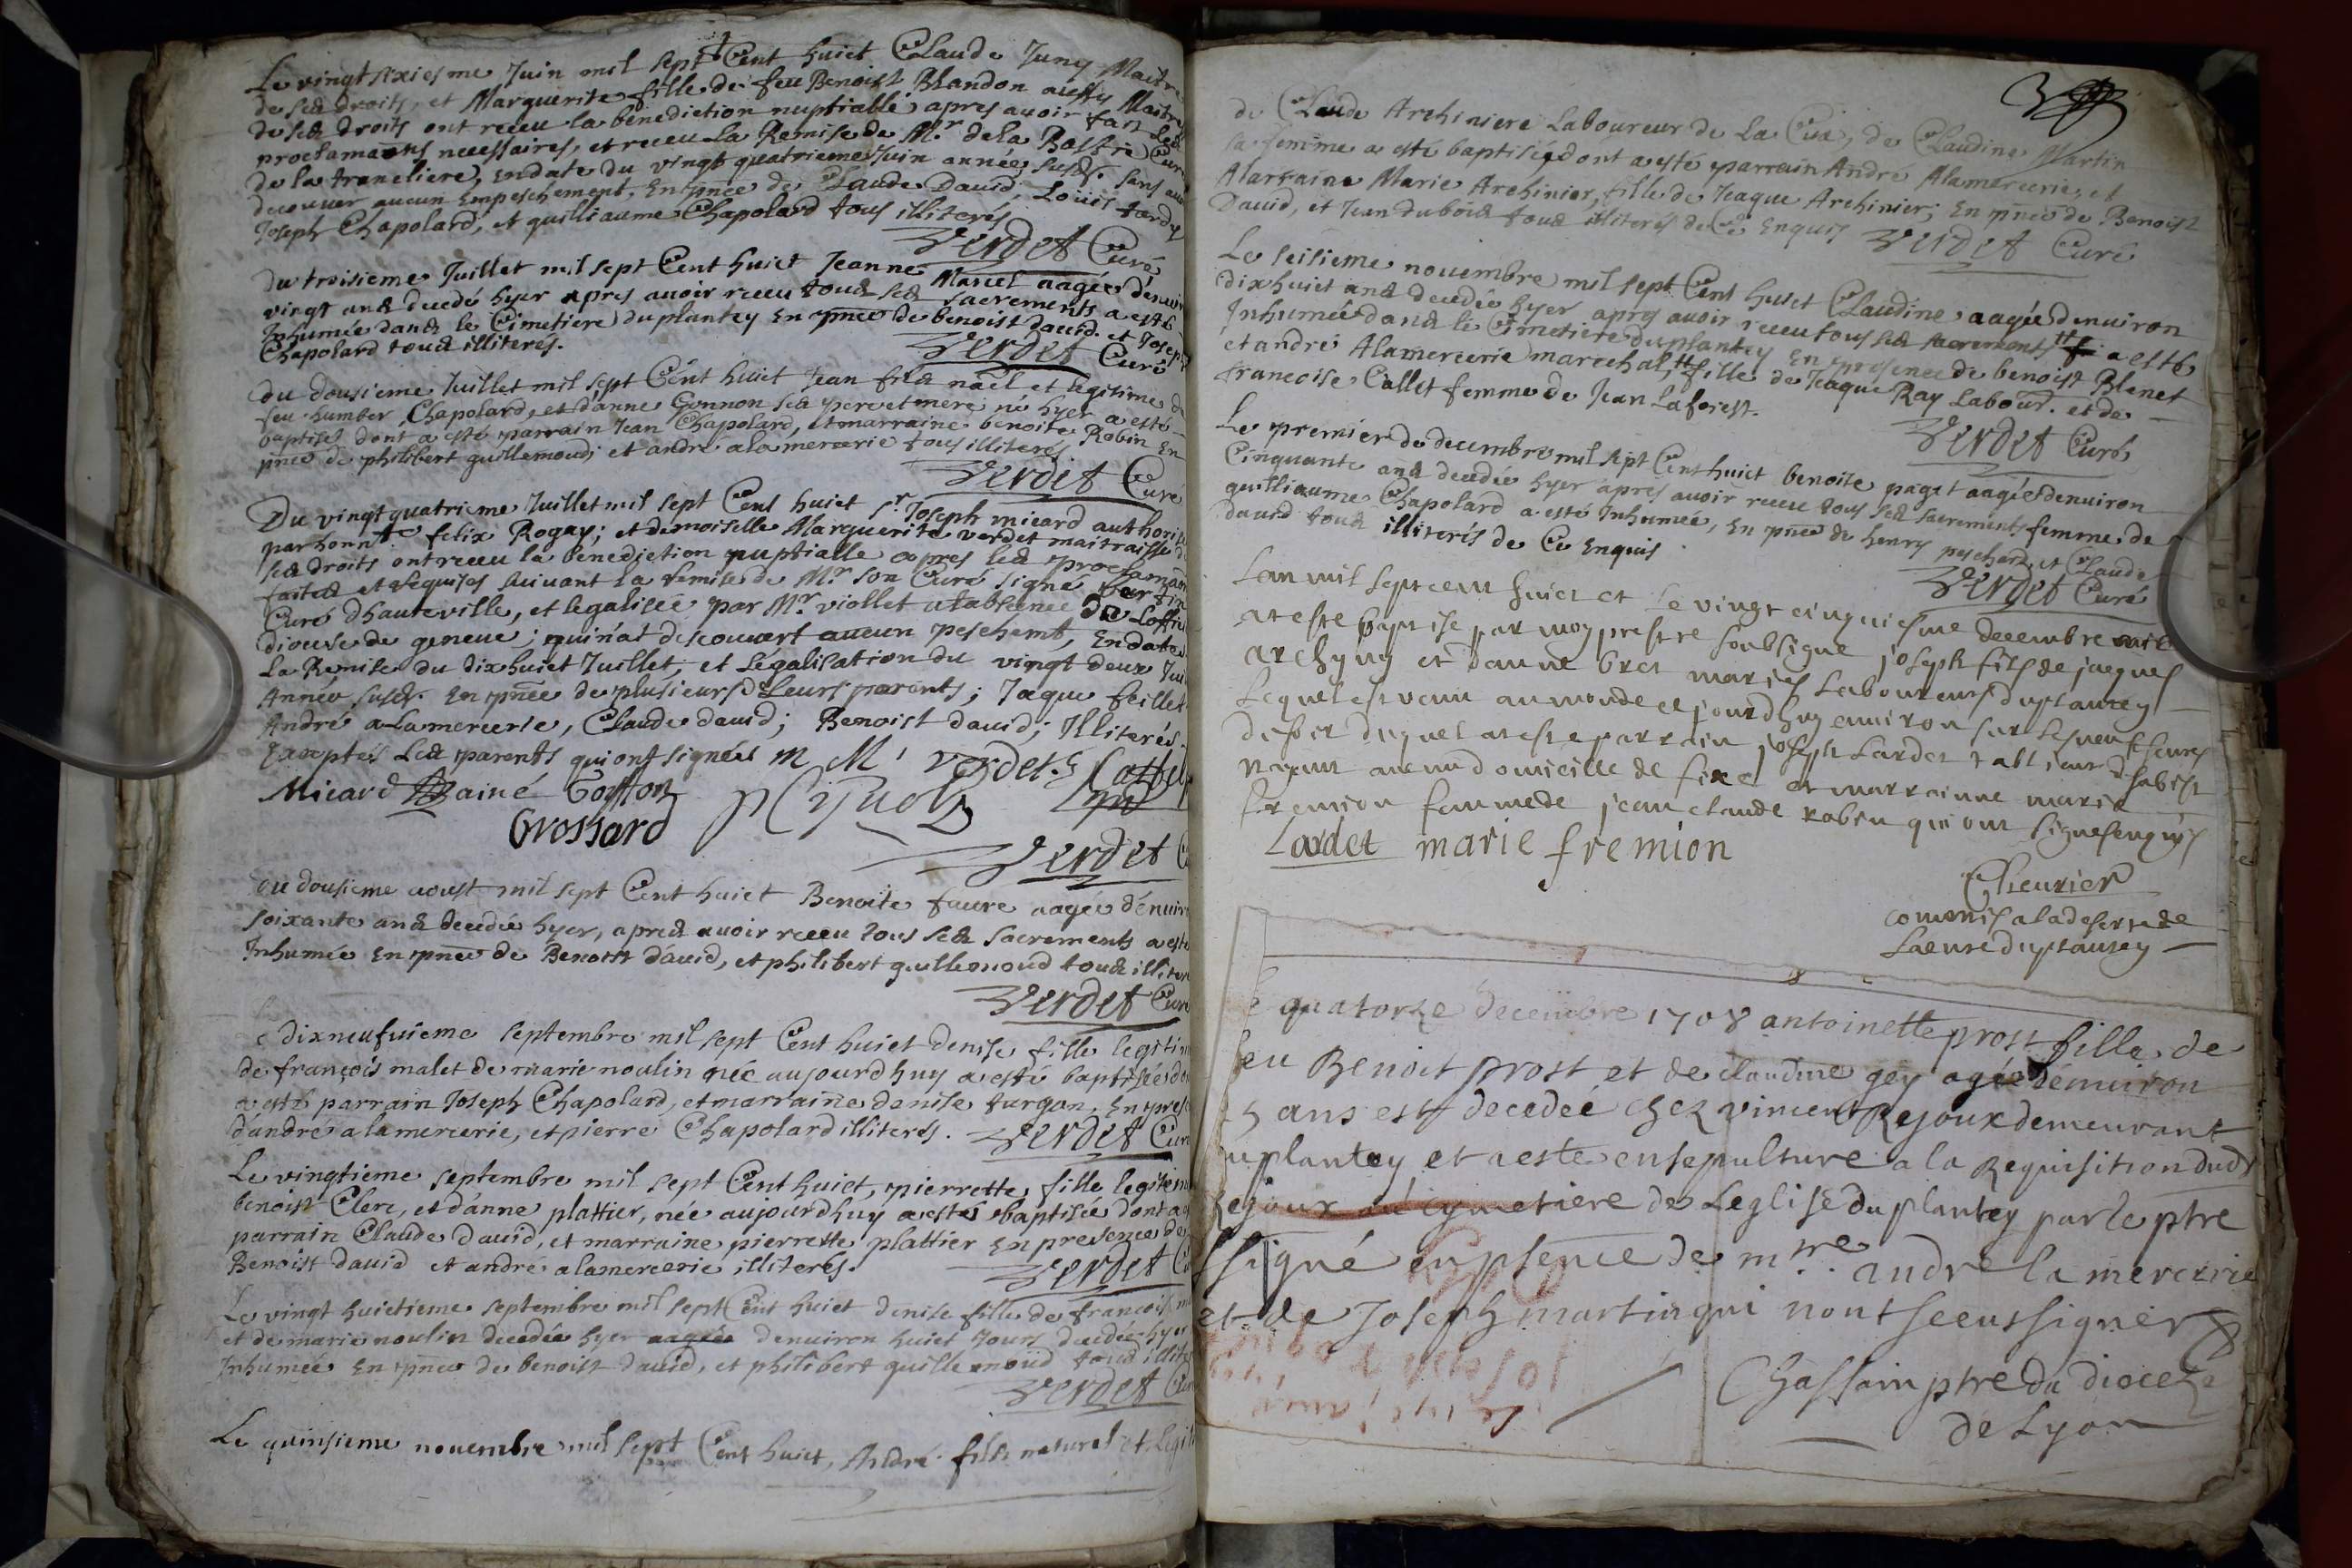 Le vingt sixiesme Juin mil sept Cent huict Claude Juny Maitre
de ses droits, et Marguerite fille de feu Benoist Blandon aussy Maitre
de ses droits ont receu la benediction nuptialle apres auoir fait les
proclamaōns necessaires, et receu La Remise de Mr de la Curé
de la trancliere, en date du vingt quatrieme Juin année susd. sans
decouuer aucun Empeschement, En pn̄ce de Claude Dauid, Louis tardy
Joseph Chapolard, et guilliaume Chapolard tous illiterés
Verdet Curé
Du troisieme Juillet mil sept Cent huict Jeanne Marcel aagée d'enuiron
vingt ans decedé hyer apres auoir receu tous ses sacrements a esté
Inhumée dans le Cimetiere du plantey En pn̄ce de benoist dauid. et Joseph
Chapolard tous illiterés.
Verdet Curé
Du dousieme Juillet mil sept Cent huict Jean fils nāel et legitime de
feu humber Chapolard, et d'anne Gonnon ses pere et mere né hyer a esté
baptisé dont a esté parrain Jean Chapolard, et marraine benoite Robin En
pn̄ce de philibert guillemoud; et andré alamercerie tous illiterés
Verdet Curé
Du vingt quatrieme Juillet mil sept Cent huict sr Joseph micard authorisé
par honnte felix Rogay; et demoiselle Marguerite verdet maitraisse de
ses droits ont receu la benediction nuptialle apres les proclamaōns
faites et Requises suiuant la Remise de Mr son Curé signé
Curé d'hauteville, et legalisée par Mr viollet a labsence de Loffi
diouse de geneue; qui n'at descouuert aucun peschemt, En date
La Remise du dix huict Juillet, et Légalisation du vingt deux Jui
Année susd. En pn̄ce de plusieurs de Leurs parents; Jaque feillet
André a Lamercerie, Claude dauid; Benoist dauid; Illiterés
Exceptés Les parents qui ont signées M M verdet
Micard ainé
Grossard
Verdet
Du dousieme aoust mil sept Cent huict Benoite faure aagée d'enuiron
soixante ans decedée hyer, apres auoir receu tous ses sacrements a esté
Inhumée En pn̄ce de Benoist dauid, et philibert guillemoud tous illiterés
Verdet Curé
Le dixneufuieme septembre mil sept Cent huict denise fille legitime
de françois malet de marie noulin née aujourdhuy a esté baptisée dont
a esté parrain Joseph Chapolard, et marraine denise turgon, En pres
d'andré alamercerie, et pierre Chapolard illiterés. Verdet Curé
Le vingtieme septembre mil sept Cent huict, pierrette fille legitime
benoist Clerc, et d'anne plattier, née aujourdhuy a esté baptisée dont a
parrain Claude dauid, et marraine pierrette plattier En presence de
Benoist dauid et andré alamercerie illiterés.
Verdet Cu
Le vingt huictieme septembre mil sept Cent huict denise fille de francois
et de marie noulin decedée hyer aagée denuiron huict Jours decedée hyer
Inhumée En pn̄ce de benoist dauid, et philibert guillemoud tous illite
Verdet Curé
Le quinsieme nouembre mil sept Cent huict, André fils naturel et legiti
de Claude Archiniere Laboureur de La Cua, de Claudine Martin
sa femme a esté baptisée, dont a esté parrain André Alamercerie, et
Marraine Marie Archinier, fille de Jeaque Archinier; En pn̄ce de Benoist
Dauid, et Jean dubois tous illiterés de Ce Enquis Verdet Curé
Le seisieme nouembre mil sept Cent huict Claudine aagée denuiron
dixhuict ans decedée hyer apres auoir receu tous ses sacrements a esté
Inhumée dans le Cimetiere du plantey En presence de benoist Blenet
et andré Alamercerie marechal, fille de Jeaque Ray Labour. et de
francoise Callet femme de Jean Laforest.
Verdet Curé
Le premier de decembre mil sept Cent huict benoite paget aagée denuiron
Cinquante ans decedée hyer apres auoir receu tous ses sacrements femme de
guilliaume Chapolard a esté Inhumée, En pn̄ce de henry peschard, et Claude
dauid tous illiterés de Ce Enquis
Verdet Curé
Lan mil sept cent huict et le vingt cinquiesme decembre
at este baptise par moy prestre soubsigne joseph fils de jacques
archyny et danne bret mariés Laboureurs du plantey
Lequel est venu au monde ce jourdhuy enuiron sur les neuf heures
du soir duquel at este parrain joseph Lardet
nayant aucun domicille de fixe et marrainne marie
fremion femme de jean claude robin qui ont signes enquis
Lardet marie fremion
Cheurier
commis a la deserte de
La cure du plantey
le quatorze decembre 1708 antoinette prost fille de
feu Benoit prost et de claudine gey agée d'enuiron
5 ans est decedée chez vincent Rejoux demeurant
au plantey et a este ensepulturé a la Requisition dudt
Rejoux au cymetiere de Leglise du plantey par le ptre
ssigné en psence de mtre andre la mercerie
et de Joseph martin qui nont sceus signer
Chassain ptre du dioceze
de Lyon